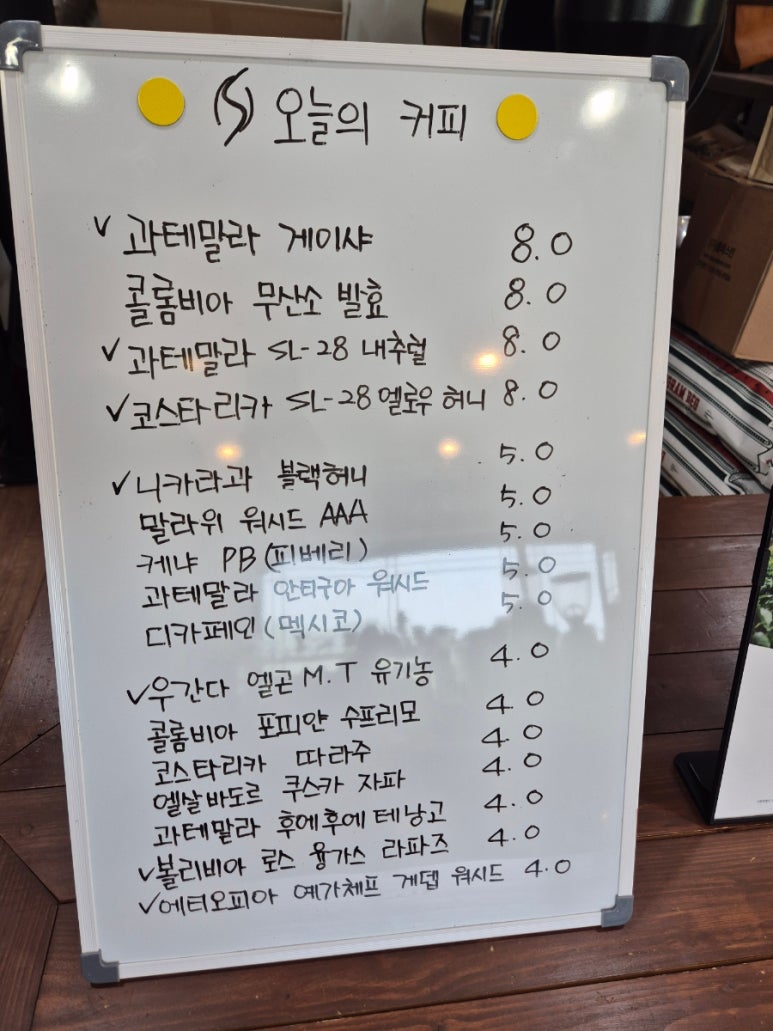 (S) 오늘의 커피
✓ 과테말라 게이샤 8.0
콜롬비아 무산소 발효 8.0
✓ 과테말라 SL-28 내추럴 8.0
✓ 코스타리카 SL-28 옐로우 허니 8.0
✓ 니카라과 블랙허니 5.0
말라위 워시드 AAA 5.0
케냐 PB(피베리) 5.0
과테말라 안티구아 워시드 5.0
디카페인(멕시코) 5.0
✓ 우간다 엘곤 M.T 유기농 4.0
콜롬비아 포피얀 수프리모 4.0
코스타리카 따라주 4.0
엘살바도르 쿠스카 자파 4.0
과테말라 후에후에테낭고 4.0
✓ 볼리비아 로스 융가스 라파즈 4.0
✓ 에티오피아 예가체프 게뎁 워시드 4.0